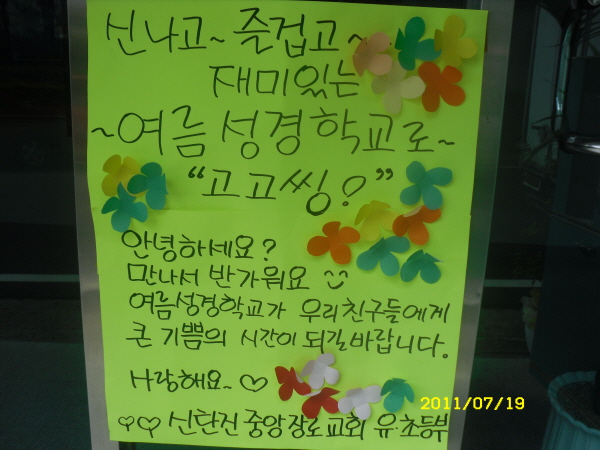 신나고~ 즐겁고~
재미있는
~여름 성경 학교로~
"고고씽?"
안녕하세요?
만나서 반가워요
여름성경학교가 우리 친구들에게
큰 기쁨의 시간이 되길 바랍니다.
사랑해요~ ♡
♡♡ 신탄진 중앙 장로 교회 유·초등부
2011/07/19